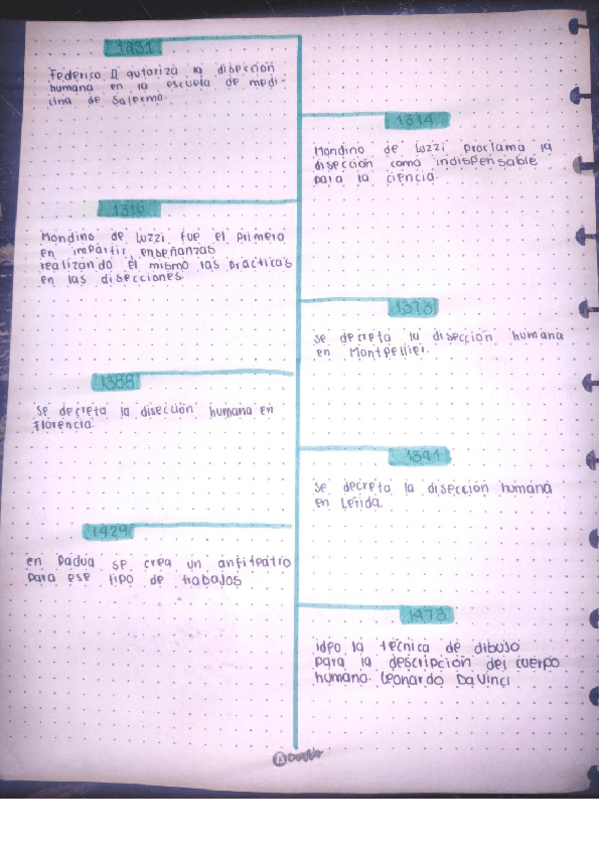 Federico II autoriza la disección
humana en la escuela de medi-
cina de Salermo.
1314
Mondino de Luzzi proclama la
disección como indispensable
para la ciencia.
1316
Mondino de Luzzi fue el primero
en impartir enseñanzas
realizando el mismo las practicas
en las disecciones.
1373
se decreta la disección humana
en Montpellier.
1388
se decreta la disección humana en
Florencia.
1391
se decreta la disección humana
en Lerida.
1429
en Padua se crea un anfiteatro
para ese tipo de trabajos
1473
ideo la técnica de dibujo
para la descripcion del cuerpo
humano. Leonardo Da Vinci